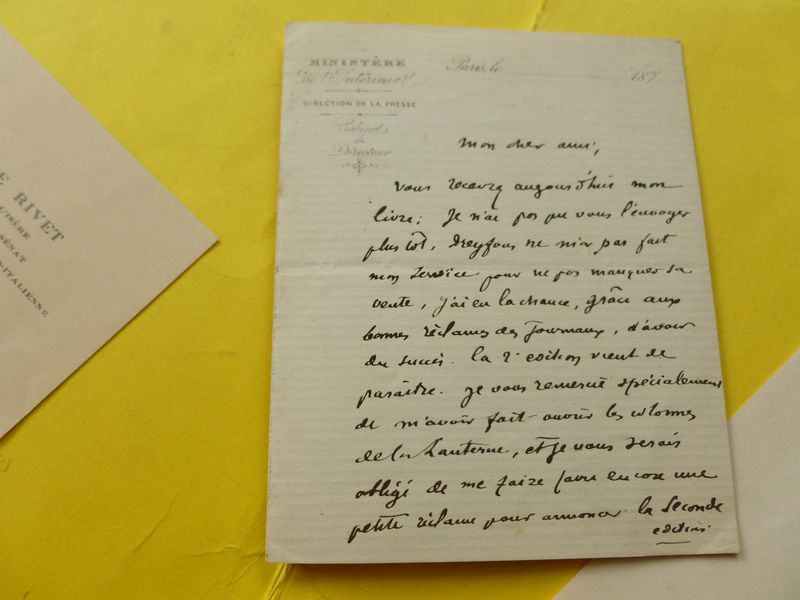 E RIVET
L'ISÈRE
SÉNAT
-ITALIENNE
MINISTÈRE
de l'Intérieur
DIRECTION DE LA PRESSE
Cabinet
du
Directeur
Paris, le 187
Mon cher ami,
Vous recevrez aujourd'hui mon
livre; Je n'ai pas pu vous l'envoyer
plus tôt, Dreyfous ne m'a pas fait
mon service pour ne pas manquer sa
vente, j'ai eu la chance, grâce aux
bonnes réclames des Journaux, d'avoir
du succès. la 2e edition vient de
paraître. je vous remercie spécialement
de m'avoir fait ouvrir les colonnes
de la Lanterne, et je vous serais
obligé de me faire faire encore une
petite réclame pour annoncer la Seconde
edition